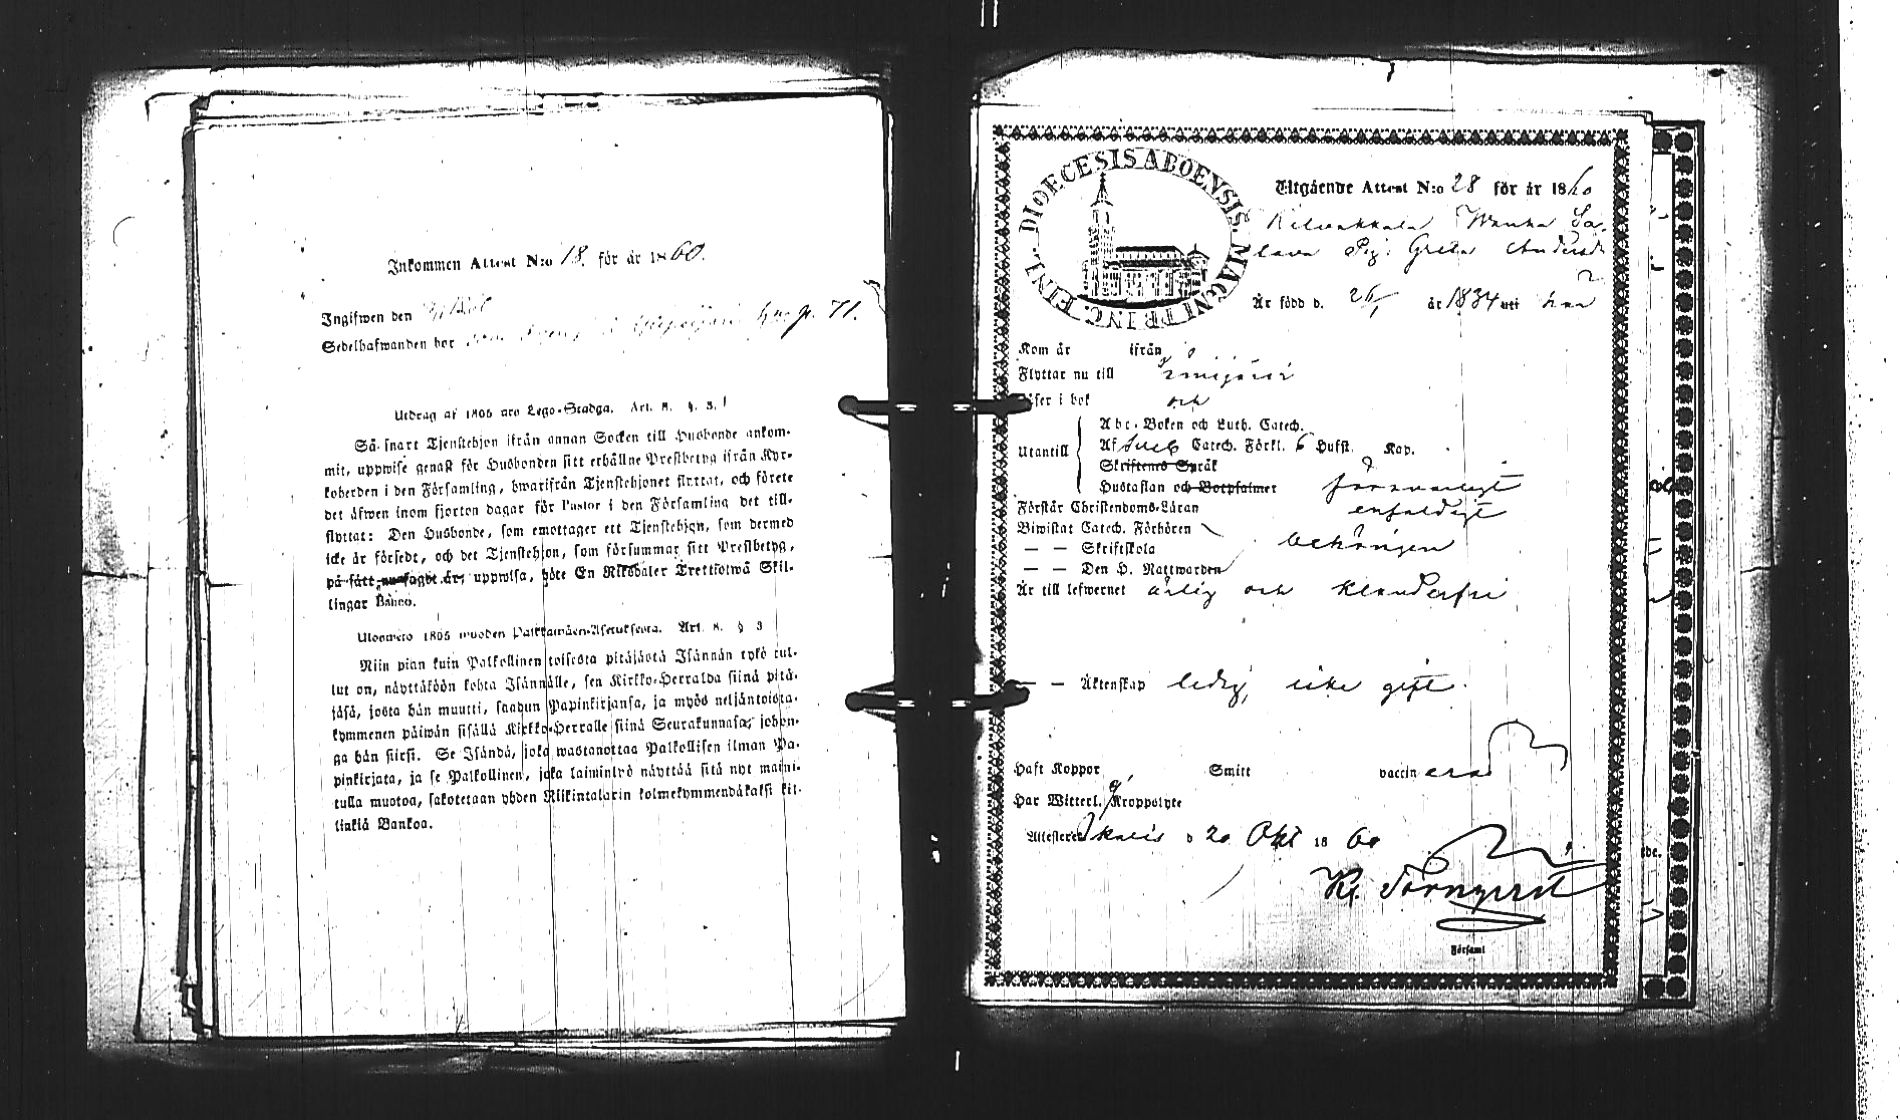 Inkommen Attest N:o 18. för år 1860.
Ingifwen den
Sedelhafwanden bor 71.
Utdrag af 1805 års Lego-Stadga. Art. 8. §. 3.
Så snart Tjenstehjon ifrån annan Socken till Husbonde ankom-
mit, uppwise genast för Husbonden sitt erhållne Prestbetyg ifrån Kyr-
koherden i den Församling, hwarifrån Tjenstehjonet flyttat, och förete
det äfwen inom fjorton dagar för Pastor i den Församling det till-
flyttat: Den Husbonde, som emottager ett Tjenstehjon, som dermed
icke är försedt, och det Tjenstehjon, som försummar sitt Prestbetyg,
på sätt nu sagdt är, uppwisa, böte En Riksdaler Trettiotwå Skil-
lingar Banco.
Ulosweto 1805 wuoden Palkkawäen-Asetuksesta. Art. 8. § 3
Niin pian kuin Palkollinen toisesta pitäjästä Isännän tykö tul-
lut on, näyttäköön kohta Isännälle, sen Kirkko-Herralda siinä pitä-
jäsä, josta hän muutti, saadun Papinkirjansa, ja myös neljäntoista-
kymmenen päiwän sisällä Kirkko-Herralle siinä Seurakunnasa, johon-
ga hän siirsi. Se Isändä, joka wastanottaa Palkollisen ilman Pa-
pinkirjata, ja se Palkollinen, joka laiminlyö näyttää sitä nyt maini-
tulla muotoa, sakotetaan yhden Riikintalarin kolmekymmendäkaksi kil-
linkiä Bankoa.
DIOECESIS ABOENSIS. MAGNI PRINC. FINL.
Utgående Attest N:o 28 för år 1860
Greta
Är född d. 26/ år 1834 uti
Kom år ifrån
Flyttar nu till
Läser i bok och
Abc-Boken och Luth. Catech.
Utantill Af Sveb Catech. Förkl. 6 Hufst. Kap.
Skriftenes Språk
Hustaflan och Botpsalmer försvarligt
Förstår Christendoms-Läran enfaldigt
Biwistat Catech. Förhören
— — Skriftskola behörigen
— — Den H. Nattwarden
Är till lefwernet ärlig och klanderfri
— — Äktenskap ledig, icke gift.
Haft Koppor Smitt vaccin
Har Witterl. Kroppslyte
Attesterar d 20 Okt 1860
Törnqvist
Församl